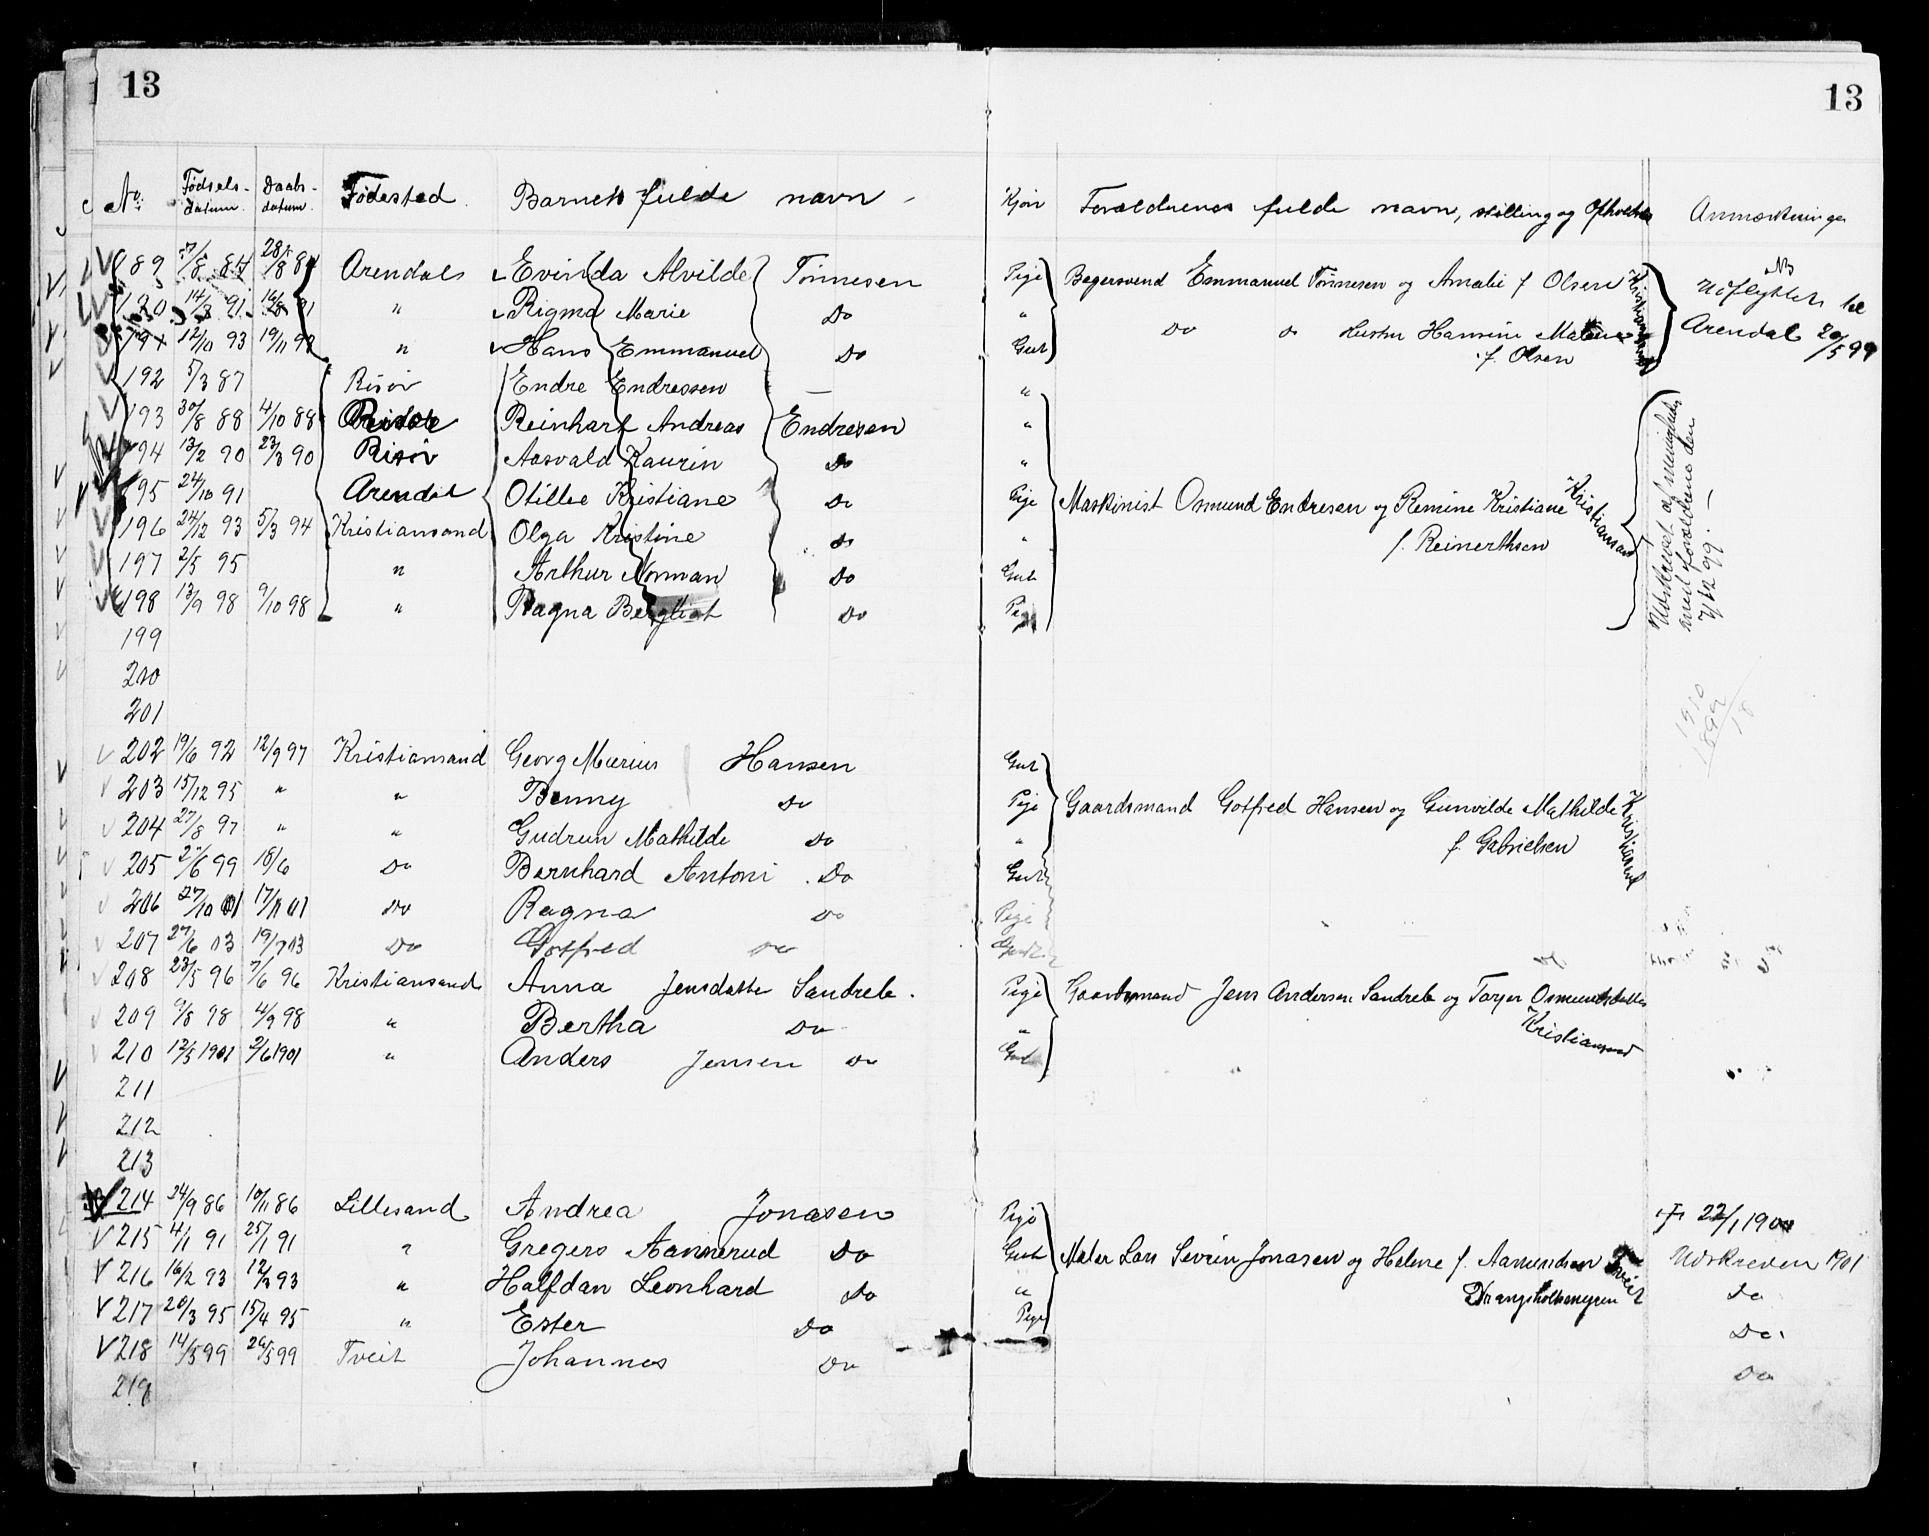 13 13
No. Fødsels-datum. Daabs-datum. Fødested. Barnets fulde navn - Kjøn Forældrenes fulde navn, stilling og Opholds Anmærkninger
189 84 28/8 84 Arendal Evinda Alvilde Tönnesen Pige Bagersvend Emmanuel Tönnesen og Amalie f. Olsen Kristiansand Udflyttet til
190 14/8 91 16/8 91 " Rigmo Marie Do "
191 12/10 93 19/11 93 " Hans Emmanuel Do Gut Do Do Hustru Hansine f. Olsen Arendal 20/5 99
192 5/3 87 Risör Endre Endressen — "
193 30/8 88 4/10 88 Risör Reinhart Andreas Endresen "
194 13/2 90 23/3 90 Risör Aasvald Kaurin Do "
195 24/10 91 Arendal Otilie Kristiane Do Pige Maskinist Osmund Endresen og Remine Kristiane Kristiansand
196 24/12 93 5/3 94 Kristiansand Olga Kristine Do " f. Reinerthsen
197 2/5 95 " Arthur Norman Do Gut
198 13/9 98 9/10 98 " Ragna Bergliot Do Pige
Udskrevet af menigheden med forældrene den 7/12 99. —
199
200
201
1910
1892
18
202 19/6 92 12/9 97 Kristiansand Georg Marius Hansen Gut
203 15/12 95 " " Benny Do Pige Gaardsmand Gotfred Hansen og Gunvilde Mathilde Kristiansand
204 27/8 97 " " Gudrun Mathilde Do " f. Gabrielsen
205 2/6 99 18/6 Do Bernhard Antoni Do Gut
206 27/10 01 17/11 01 Do Ragna Do Pige
207 27/6 03 19/7 03 Do Gotfred Do Gut
208 23/5 96 7/6 96 Kristiansand Anna Jensdatter Sandreb. Pige Gaardsmand Jens Andersen Sandreb og Tarjer Osmundsdatter
209 9/8 98 4/9 98 " Bertha Do " Kristiansand
210 12/5 1901 2/6 1901 " Anders Jensen Do Gut
211
212
213
214 24/9 86 10/11 86 Lillesand Andrea Jonasen Pige † 22/1 1900
215 4/1 91 25/1 91 " Gregers Aannerud Do Gut Maler Lars Severin Jonasen og Helene f. Aamundsen Tveit Udskreven 1901
216 16/2 93 12/2 93 " Halfdan Leonhard Do " Drangsholtsmyren Do
217 20/3 95 15/4 95 " Ester Do Pige Do.
218 14/5 99 26/5 99 Tveit Johannes Do Do
219